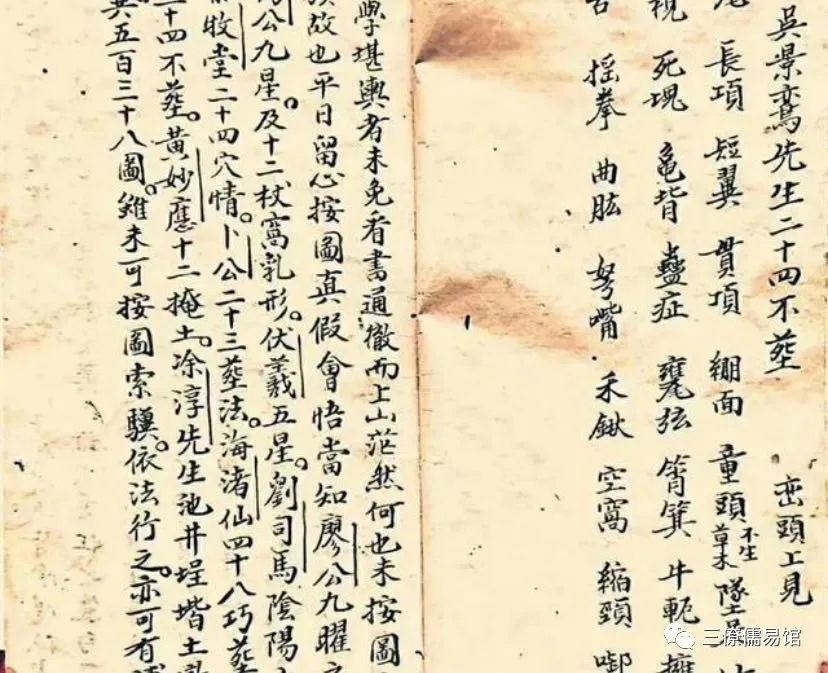 吳景鸞先生二十四不塟 巒頭上見
長項 短翼 貫項 綳面 童頭不生草木 墜
視 死塊 龜背 蠱症 甕弦 筲箕 牛軛 擁
搖拳 曲肱 努嘴 禾鍬 空窩 縮頸
學堪輿者未免看書通徹而上山茫然何也未按圖
故也平日留心按圖真假會悟當知廖公九曜
公九星及十二杖窩乳形伏羲五星劉司馬陰陽
牧堂二十四穴情卜公二十三塟法海渚仙四十八巧塟
二十四不塟黃妙應十二掩土凃淳先生池井埕堦土
共五百三十八圖雖未可按圖索驥依法行之亦可有
三僚儒易馆